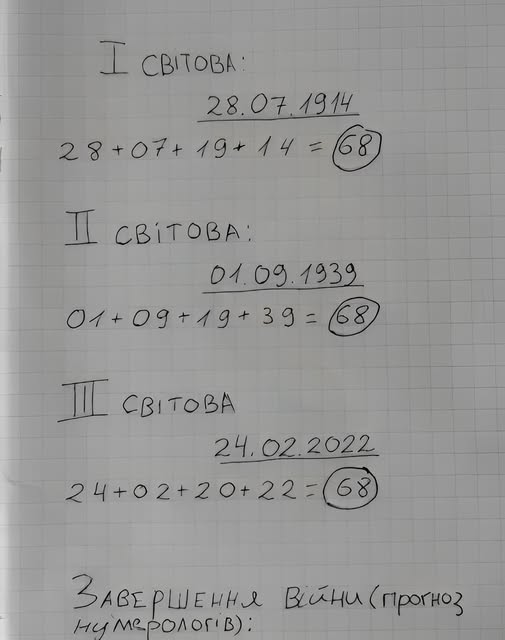 I СВІТОВА:
28.07.1914
28+07+19+14=68
II СВІТОВА:
01.09.1939
01+09+19+39=68
III СВІТОВА
24.02.2022
24+02+20+22=68
ЗАВЕРШЕННЯ ВІЙНИ (прогноз
нумерологів):